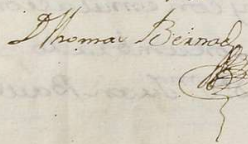 Dn Thomas Bernad